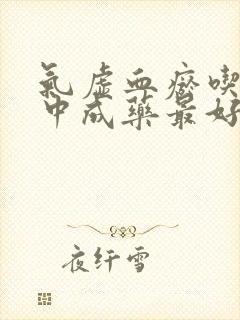 氣虛血瘀喫
中成藥最好
夜纤雪